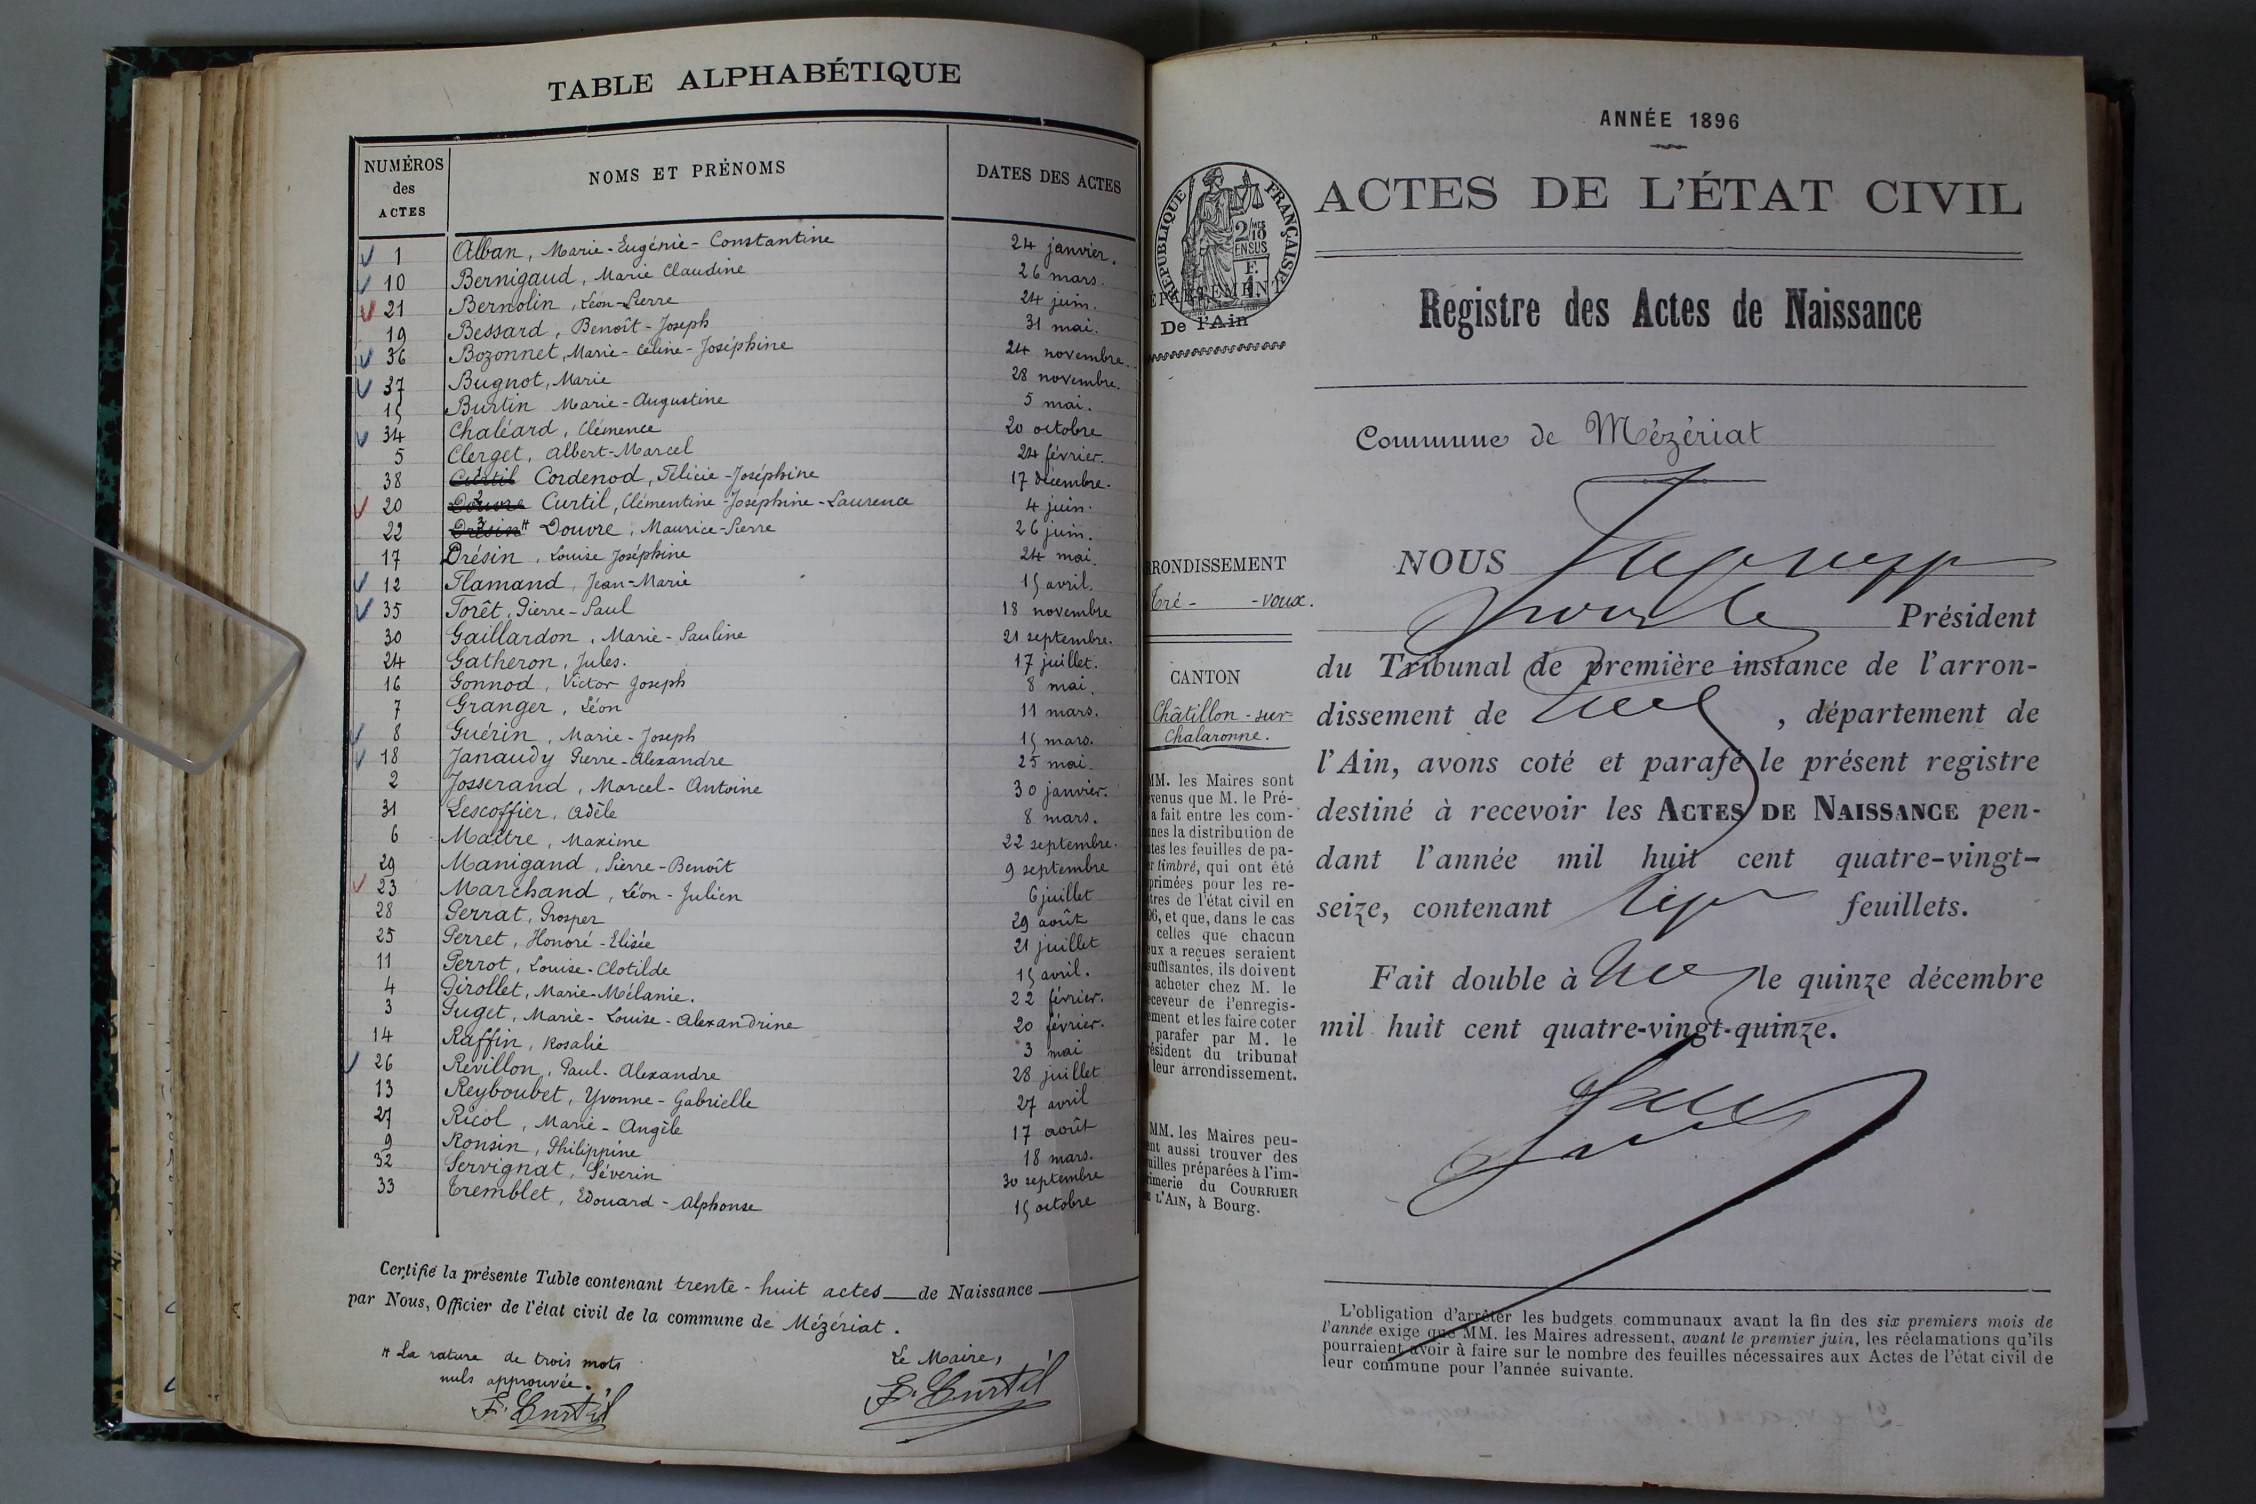 TABLE ALPHABÉTIQUE
NUMÉROS des ACTES NOMS ET PRÉNOMS DATES DES ACTES
1 Alban, Marie-Eugénie-Constantine 24 janvier.
10 Bernigaud, Marie Claudine 26 mars.
21 Bernolin, Léon-Pierre 24 juin.
19 Bessard, Benoît-Joseph 31 mai.
36 Bozonnet, Marie-Céline-Joséphine 24 novembre.
37 Bugnot, Marie 28 novembre.
15 Burtin Marie-Augustine 5 mai.
34 Chaléard, Clémence 20 octobre
5 Clerget, Albert-Marcel 24 février.
38 Curtil Cordenod, Félicie-Joséphine 17 décembre.
20 Douvre Curtil, Clémentine-Joséphine-Laurence 4 juin.
22 Drésin # Douvre, Maurice-Pierre 26 juin.
17 Drésin, Louise Joséphine 24 mai.
12 Flamand, Jean-Marie 15 avril.
35 Forêt, Pierre-Paul 18 novembre
30 Gaillardon, Marie-Pauline 21 septembre.
24 Gatheron, Jules. 17 juillet.
16 Gonnod, Victor Joseph 8 mai.
7 Granger, Léon 11 mars.
8 Guérin, Marie-Joseph 15 mars.
18 Janaudy Pierre-Alexandre 25 mai.
2 Josserand, Marcel-Antoine 30 janvier.
31 Lescoffier, Adèle 8 mars.
6 Maître, Maxime 22 septembre.
29 Manigand, Pierre-Benoît 9 septembre
23 Marchand, Léon-Julien 6 juillet
28 Perrat, Prosper 29 août
25 Perret, Honoré-Elisée 21 juillet
11 Perrot, Louise-Clotilde 15 avril.
4 Pirollet, Marie-Mélanie. 22 février.
3 Puget, Marie-Louise-Alexandrine 20 février.
14 Raffin, Rosalie 3 mai
26 Révillon, Paul-Alexandre 28 juillet
13 Reyboubet, Yvonne-Gabrielle 27 avril
27 Ricol, Marie-Angèle 17 août
9 Ronsin, Philippine 18 mars.
32 Servignat, Séverin 30 septembre
33 Tremblet, Edouard-Alphonse 15 octobre
Certifié la présente Table contenant trente-huit actes de Naissance
par Nous, Officier de l'état civil de la commune de Mézériat.
# La rature de trois mots
nuls approuvée.
F. Curtil
Le Maire,
F. Curtil
ANNÉE 1896
RÉPUBLIQUE FRANÇAISE
2/10 EN SUS
ACTES DE L'ÉTAT CIVIL
De l'Ain
Registre des Actes de Naissance
Commune de Mézériat
RRONDISSEMENT
Tré- -voux.
CANTON
Châtillon-sur-
Chalaronne.
MM. les Maires sont
evenus que M. le Pré-
a fait entre les com-
nes la distribution de
tes les feuilles de pa-
r timbré, qui ont été
primées pour les re-
tres de l'état civil en
96, et que, dans le cas
celles que chacun
eux a reçues seraient
suffisantes, ils doivent
acheter chez M. le
eceveur de l'enregis-
ement et les faire coter
parafer par M. le
ésident du tribunal
leur arrondissement.
MM. les Maires peu-
ent aussi trouver des
uilles préparées à l'im-
rimerie du COURRIER
L'AIN, à Bourg.
NOUS
Président
du Tribunal de première instance de l'arron-
dissement de , département de
l'Ain, avons coté et parafé le présent registre
destiné à recevoir les ACTES DE NAISSANCE pen-
dant l'année mil huit cent quatre-vingt-
seize, contenant feuillets.
Fait double à le quinze décembre
mil huit cent quatre-vingt-quinze.
L'obligation d'arrêter les budgets communaux avant la fin des six premiers mois de
l'année exige que MM. les Maires adressent, avant le premier juin, les réclamations qu'ils
pourraient avoir à faire sur le nombre des feuilles nécessaires aux Actes de l'état civil de
leur commune pour l'année suivante.